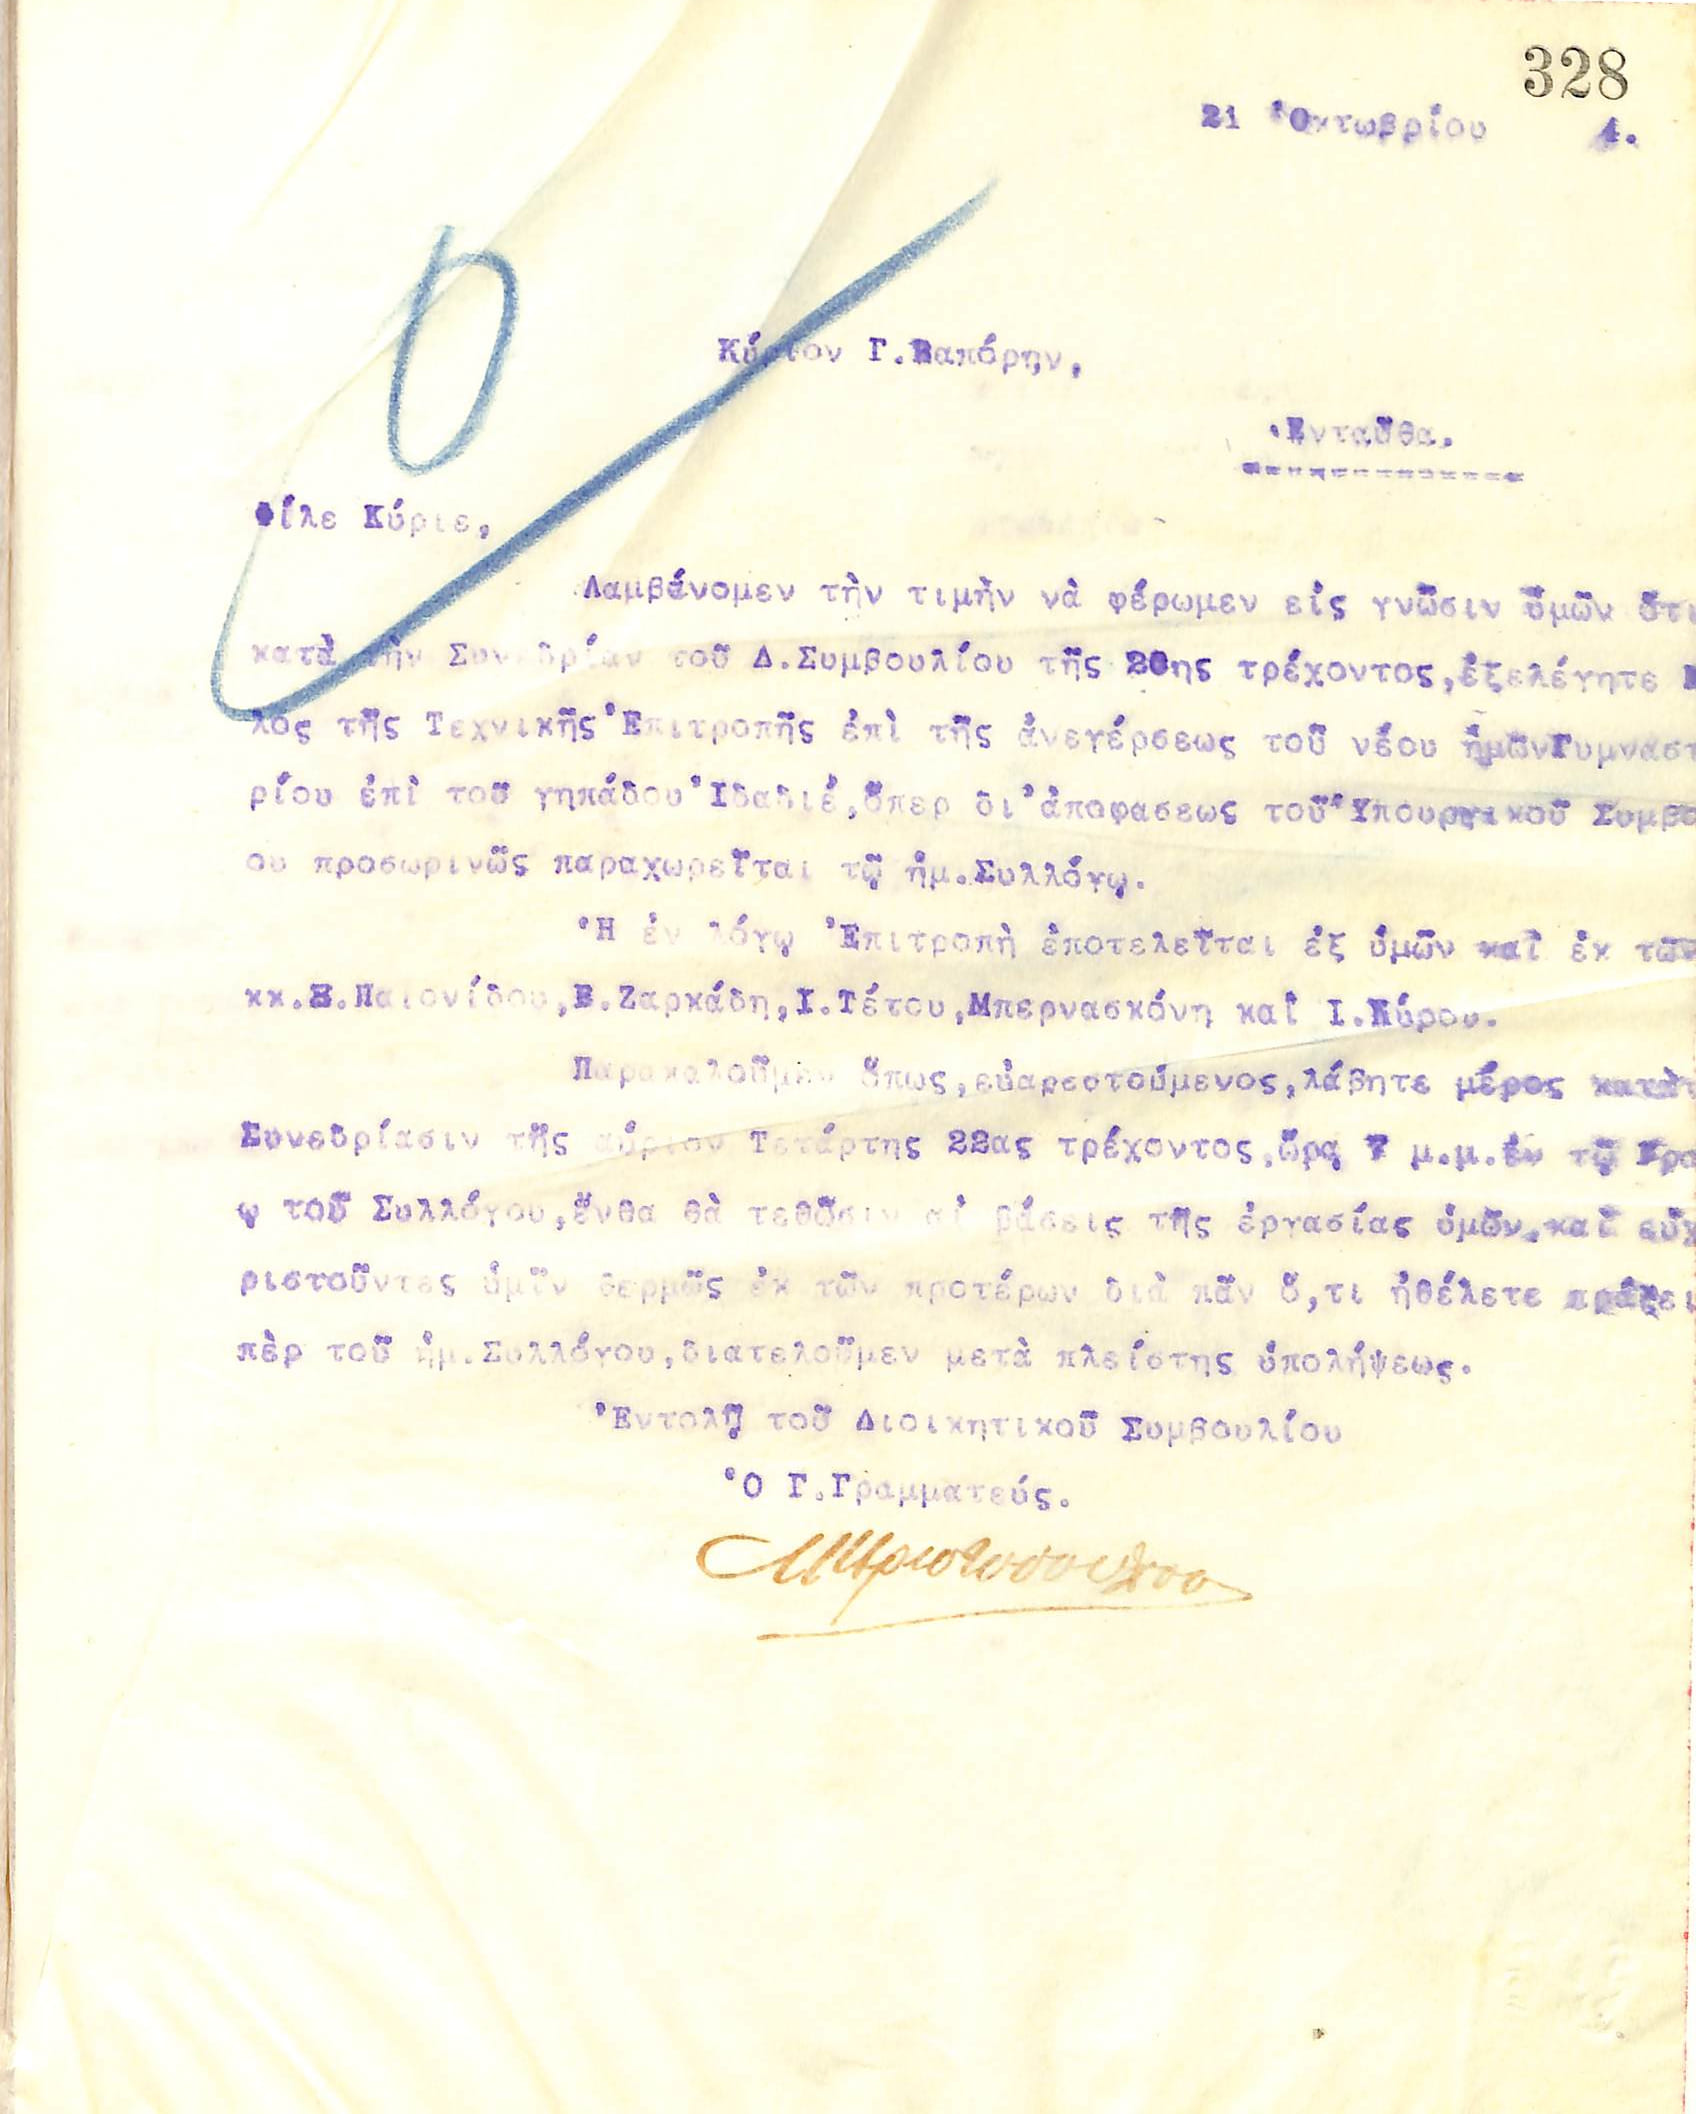 328
21 Ὀκτωβρίου 4.
Κύριον Γ.Βαπόρην,
Ἐνταῦθα.
Φίλε Κύριε,
Λαμβάνομεν τὴν τιμὴν νὰ φέρωμεν εἰς γνῶσιν ὑμῶν ὅτι
κατὰ τὴν Συνεδρίαν τοῦ Δ.Συμβουλίου τῆς 20ης τρέχοντος,ἐξελέγητε
λος τῆς Τεχνικῆς Ἐπιτροπῆς ἐπὶ τῆς ἀνεγέρσεως τοῦ νέου ἡμῶν Γυμναστ
ρίου ἐπὶ τοῦ γηπέδου Ἰδαδιέ,ὅπερ δι'ἀποφασεως τοῦ Ὑπουργικοῦ Συμβο
ου προσωρινῶς παραχωρεῖται τῷ ἡμ.Συλλόγῳ.
Ἡ ἐν λόγῳ Ἐπιτροπὴ ἐποτελεῖται ἐξ ὑμῶν καὶ ἐκ τῶν
κκ.Ξ.Παιονίδου,Β.Ζαρκάδη,Ι.Τέτου,Μπερνασκόνη καὶ Ι.Κύρου.
Παρακαλοῦμεν ὅπως,εὐαρεστούμενος,λάβητε μέρος κατὰ τ
Συνεδρίασιν τῆς αὔριον Τετάρτης 22ας τρέχοντος,ὥρᾳ 7 μ.μ.ἐν τῷ Γρα
ῳ τοῦ Συλλόγου,ἔνθα θὰ τεθῶσιν αἱ βάσεις τῆς ἐργασίας ὑμῶν,καὶ εὐχ
ριστοῦντες ὑμῖν θερμῶς ἐκ τῶν προτέρων διὰ πᾶν ὅ,τι ἠθέλετε πράξει
πὲρ τοῦ ἡμ.Συλλόγου,διατελοῦμεν μετὰ πλείστης ὑπολήψεως.
Ἐντολῇ τοῦ Διοικητικοῦ Συμβουλίου
Ὁ Γ.Γραμματεύς.